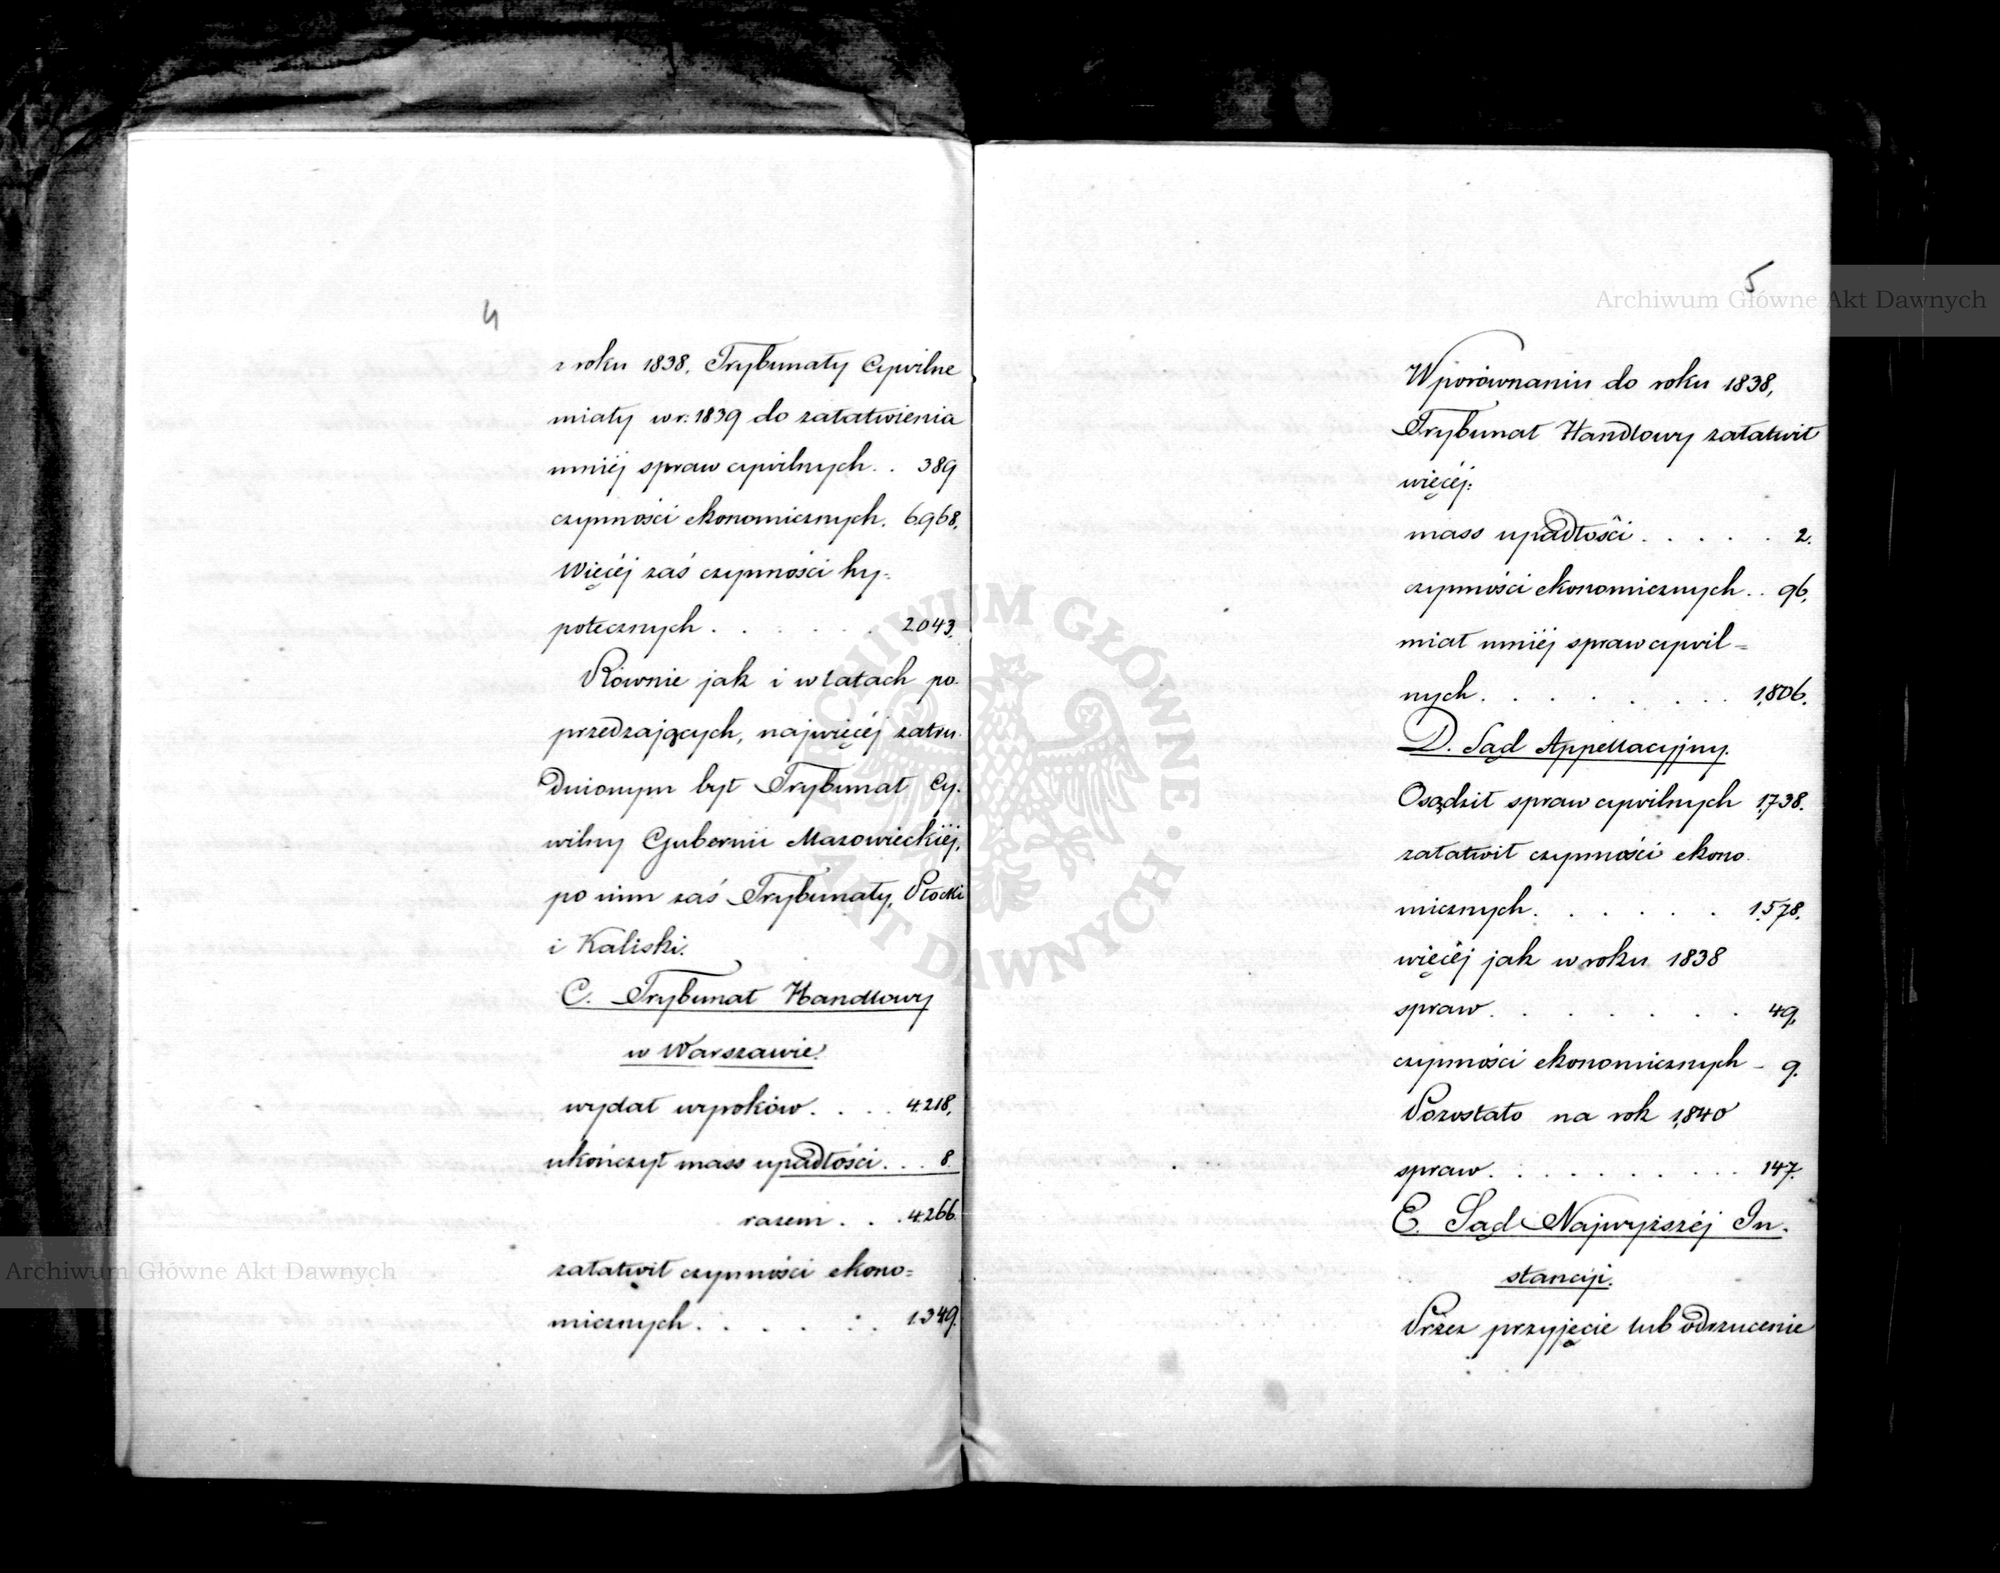 4
z roku 1838, Trybunały Cywilne
miały w r: 1839 do załatwienia
mniéj spraw cywilnych . . 389
czynności ekonomicznych. 6,968.
Więcéj zaś czynności hy-
potecznych . . . . . . 2,043.
Równie jak i w latach po-
przedzających, najwięcéj zatru-
dnionym był Trybunał Cy-
wilny Gubernii Mazowieckiéj,
po nim zaś Trybunały, Płocki
i Kaliski.
C. Trybunał Handlowy
w Warszawie.
wydał wyroków . . . . 4,218,
ukończył mass upadłości . . . 8.
razem . . . 4,266.
załatwił czynności ekono=
micznych . . . . . . 1,349.
5
W porównaniu do roku 1838,
Trybunał Handlowy załatwił
więcéj:
mass upadłości . . . . . 2.
czynności ekonomicznych . . 96,
miał mniéj spraw cywil=
nych . . . . . . . . 1,806.
D. Sąd Appellacyjny.
Osądził spraw cywilnych 1,738.
załatwił czynności ekono-
micznych . . . . . . 1,578.
więcéj jak w roku 1838
spraw . . . . . . . 49,
czynności ekonomicznych - 9.
Pozostało na rok 1,840
spraw . . . . . . . . . 147.
E. Sąd Najwyższéj In-
stancyi.
Przez przyjęcie lub odrzucenie
Archiwum Główne Akt Dawnych
Archiwum Główne Akt Dawnych
ARCHIWUM GŁÓWNE AKT DAWNYCH